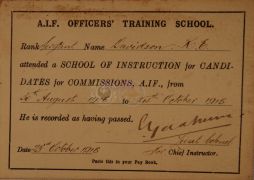 A.I.F. OFFICERS' TRAINING SCHOOL.
Rank Sergeant Name Davidson. K. E.
attended a SCHOOL OF INSTRUCTION for CANDI-
DATES for COMMISSIONS, A.I.F., from
August 1916 to October 1916
He is recorded as having passed.
Lieut Colonel
for Chief Instructor.
Date 25th October 1916
Paste this in your Pay Book.